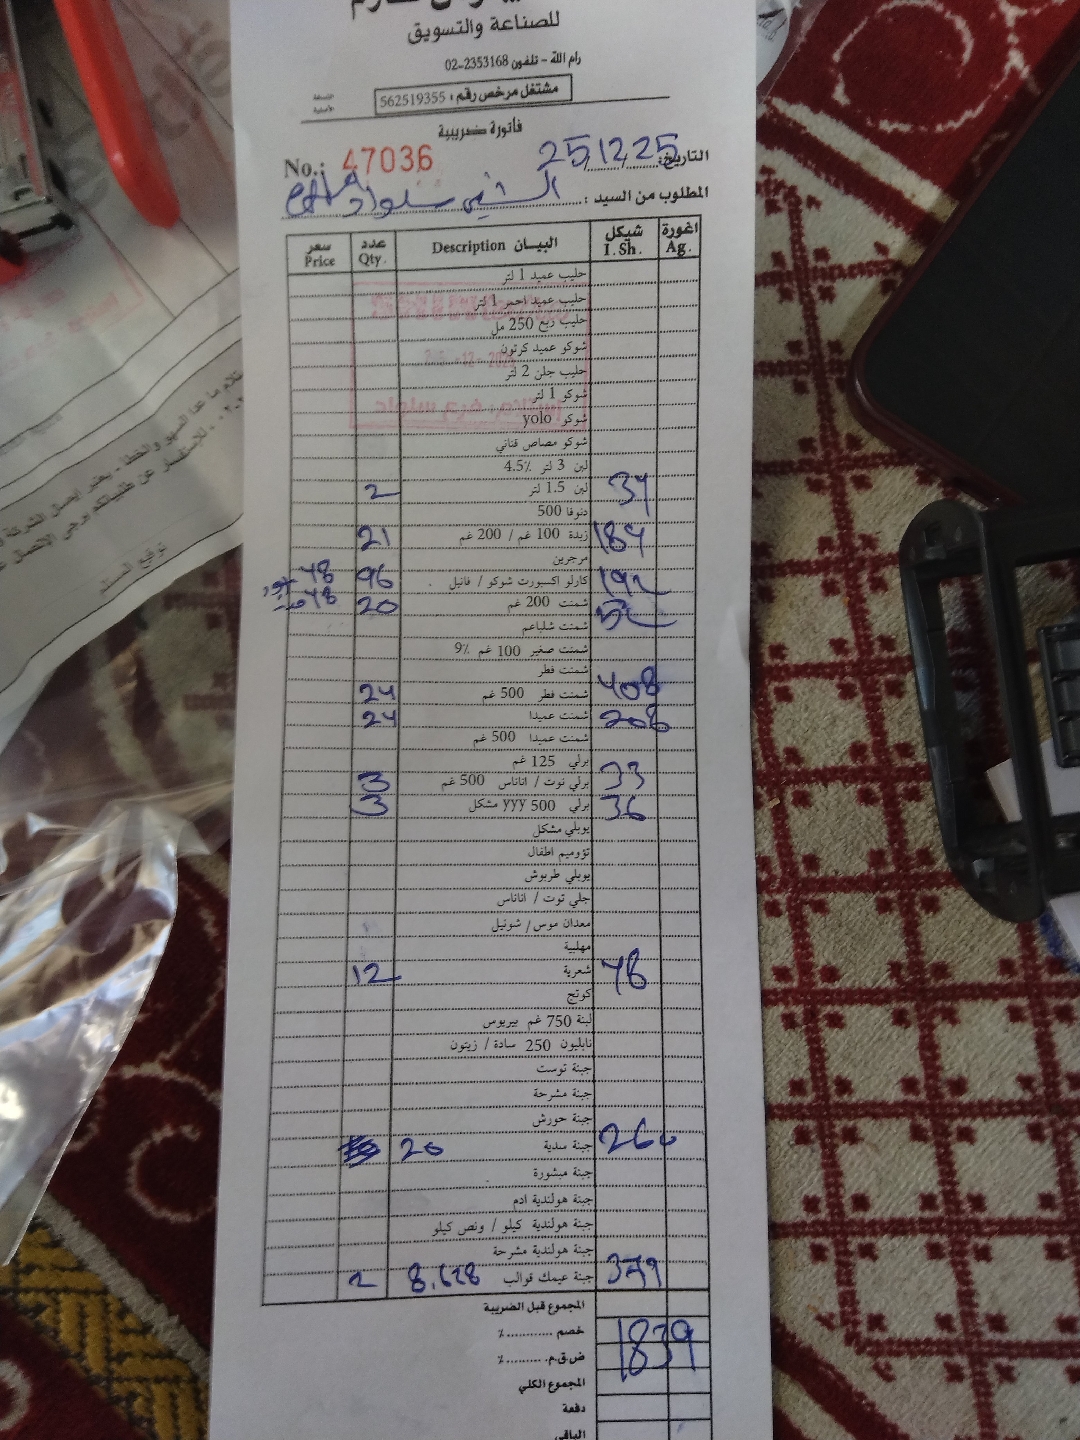 للصناعة والتسويق
رام الله - تلفون 02-2353168
مشتغل مرخص رقم : 562519355
فاتورة ضريبية
No.: 47036
التاريخ: 25/12/25
المطلوب من السيد : الشني سلواد
سعر Price عدد Qty. البيـان Description شيكل I.Sh. اغورة Ag.
حليب عميد 1 لتر
حليب عميد احمر 1 لتر
حليب ربع 250 مل
شوكو عميد كرتون
حليب جلن 2 لتر
شوكو 1 لتر
شوكو yolo
شوكو مصاص قناني
لبن 3 لتر 4.5٪
2 لبن 1.5 لتر 34
دنوفا 500
21 زبدة 100 غم / 200 غم 184
مرجرين
48 96 كارلو اكسبورت شوكو / فانيل 192
48 20 شمنت 200 غم
شمنت شلباعم
شمنت صغير 100 غم 9٪
شمنت فطر
24 شمنت فطر 500 غم 408
24 شمنت عميدا 208
شمنت عميدا 500 غم
برلي 125 غم
3 برلي توت / اناناس 500 غم 33
3 برلي 500 yyy مشكل 36
يوبلي مشكل
تؤوميم اطفال
يوبلي طربوش
جلي توت / اناناس
معدان موس / شوتيل
مهلبية
12 شعرية 48
كوتج
لبنة 750 غم بيريوس
نابليون 250 سادة / زيتون
جبنة توست
جبنة مشرحة
جبنة حورش
20 جبنة سدية 260
جبنة مبشورة
جبنة هولندية ادم
جبنة هولندية كيلو / ونص كيلو
جبنة هولندية مشرحة
2 8.628 جبنة عيمك قوالب 379
المجموع قبل الضريبة
خصم ............ ٪
1839
ض.ق.م. .......... ٪
المجموع الكلي
دفعة
الباقي
توقيع المستلم